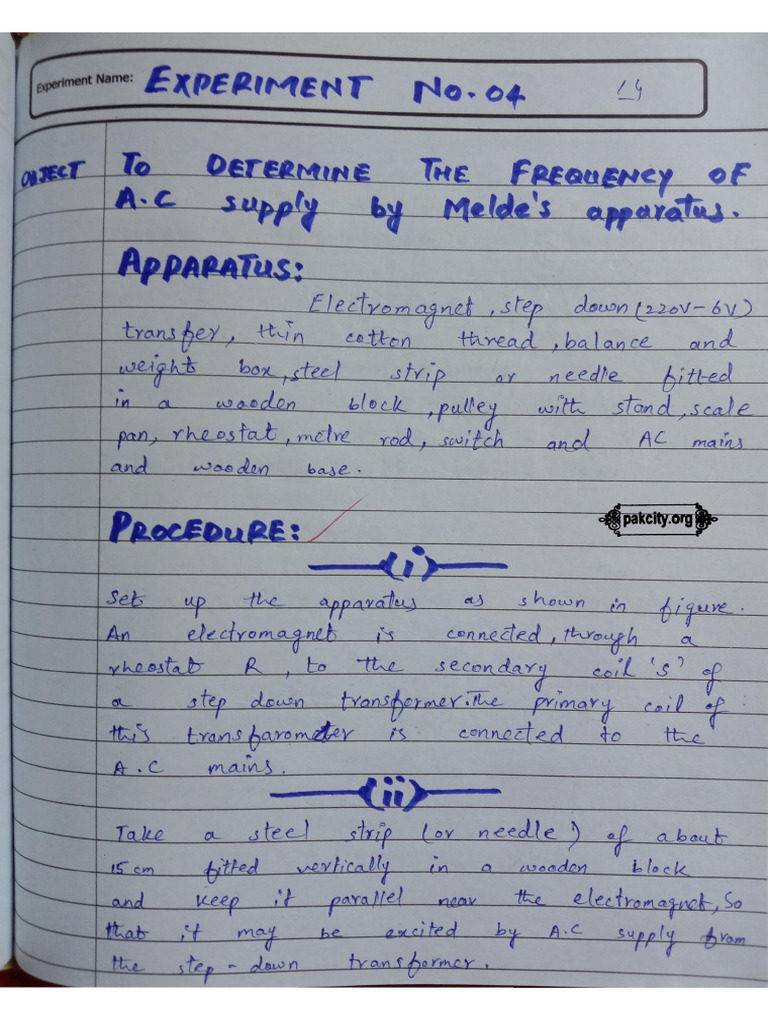 Experiment Name: EXPERIMENT No.04
OBJECT TO DETERMINE THE FREQUENCY OF
A.C supply by Melde's apparatus.
APPARATUS:
Electromagnet, step down (220V-6V)
transfer, thin cotton thread, balance and
weight box, steel strip or needle fitted
in a wooden block, pulley with stand, scale
pan, rheostat, metre rod, switch and AC mains
and wooden base.
pakcity.org
PROCEDURE:
(i)
Set up the apparatus as shown in figure.
An electromagnet is connected, through a
rheostat R, to the secondary coil 's' of
a step down transformer. The primary coil of
this is connected to the
A.C mains.
(ii)
Take a steel strip (or needle) of about
15 cm fitted vertically in a wooden block
and keep it parallel near the electromagnet, So
that it may be excited by A.C supply from
the step-down transformer.